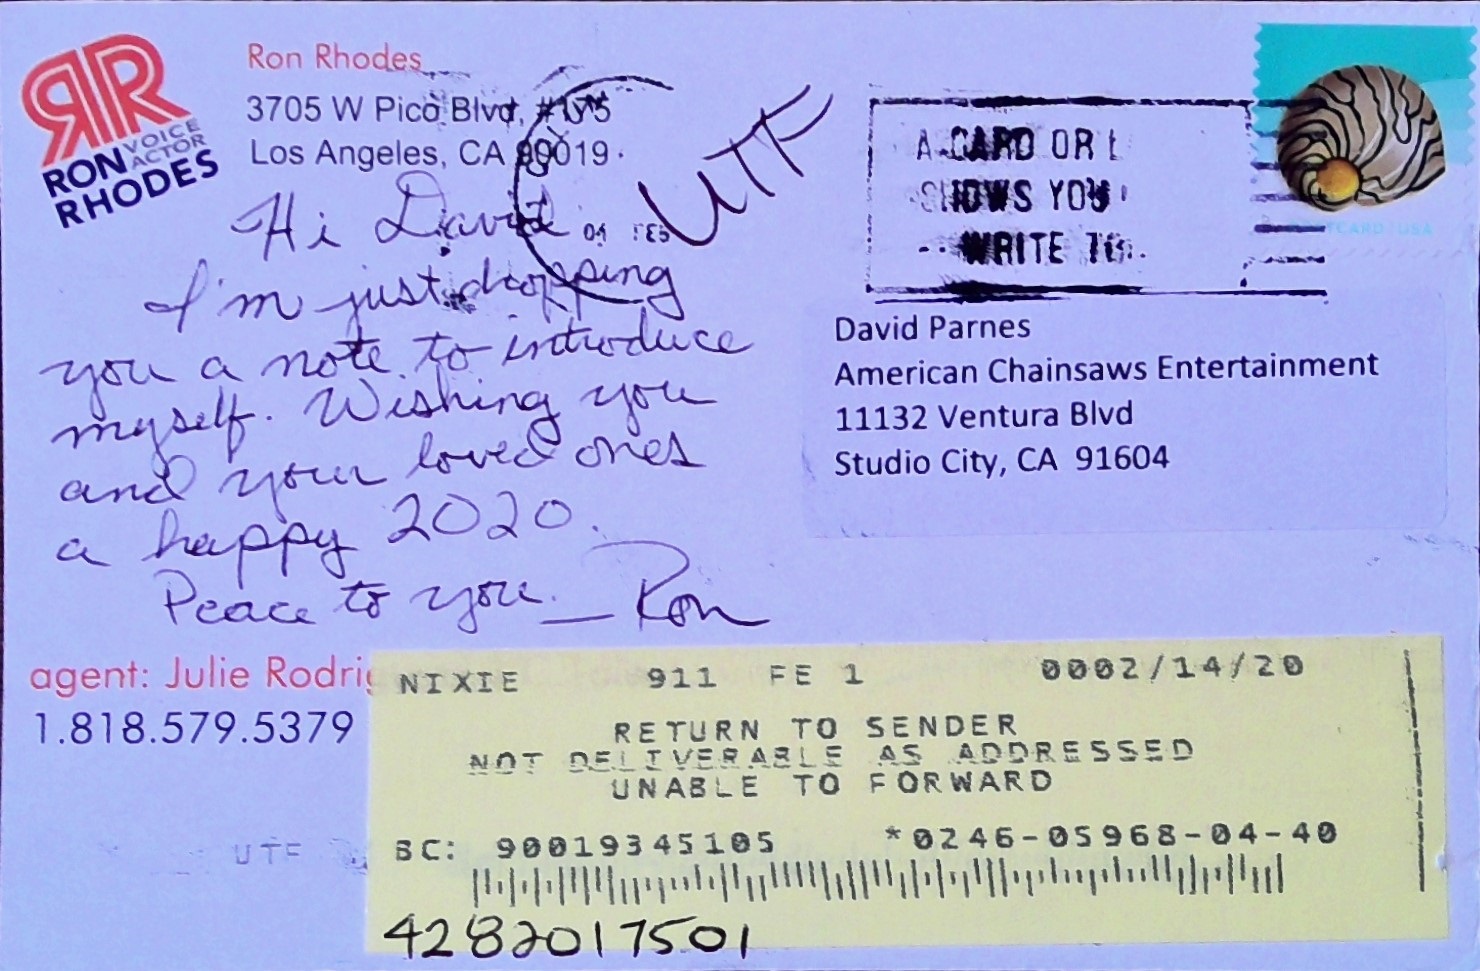 RR
RON VOICE ACTOR
RHODES
Ron Rhodes
3705 W Pico Blvd, #175
Los Angeles, CA 90019
UTF
04 FEB
A CARD OR L
SHOWS YOU
WRITE TO
Hi David
I'm just dropping
you a note to introduce
myself. Wishing you
and your loved ones
a happy 2020.
Peace to you. — Ron
David Parnes
American Chainsaws Entertainment
11132 Ventura Blvd
Studio City, CA 91604
agent: Julie Rodri
1.818.579.5379
NIXIE 911 FE 1 0002/14/20
RETURN TO SENDER
NOT DELIVERABLE AS ADDRESSED
UNABLE TO FORWARD
UTF
BC: 90019345105 *0246-05968-04-40
4282017501